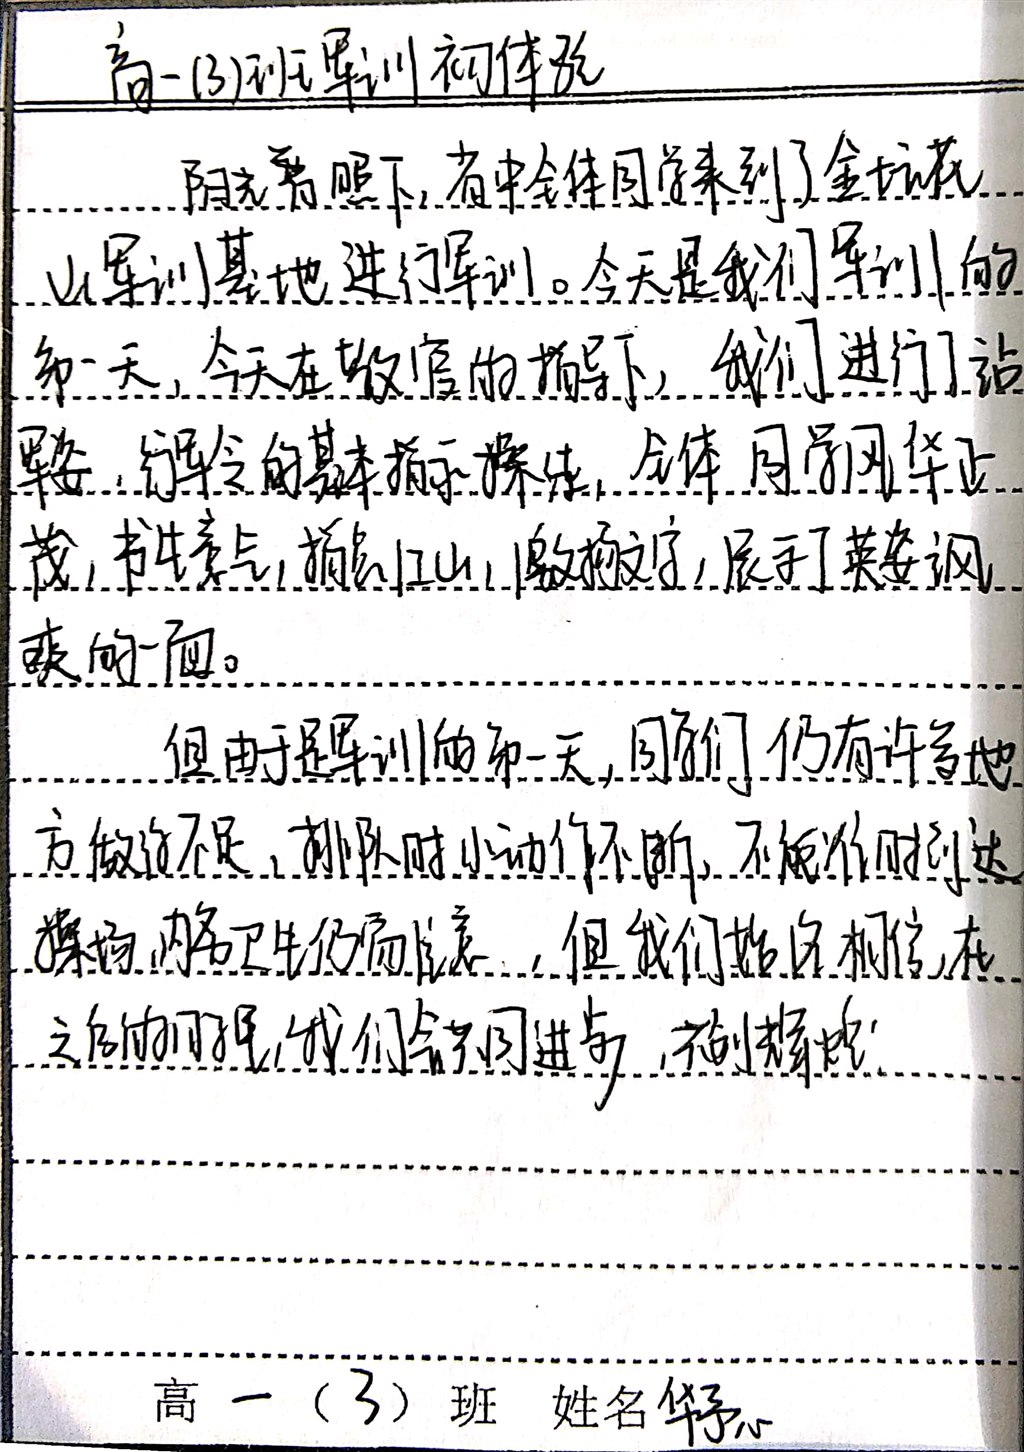 高一(3)班军训初体验
阳光普照下,省中全体同学来到了金坛茅
山军训基地进行军训。今天是我们军训的
第一天,今天在教官的指导下,我们进行了站
军姿,行军令的基本指示操练,全体同学风华正
茂,书生意气,指点江山,激扬文字,展示了英姿飒
爽的一面。
但由于是军训的第一天,同学们仍有许多地
方做得不足,排队时小动作不断,不能准时到达
操场,内务卫生仍需注意,但我们始终相信,在
之后的时间里,我们会共同进步,共创辉煌!
高一(3)班 姓名华予心